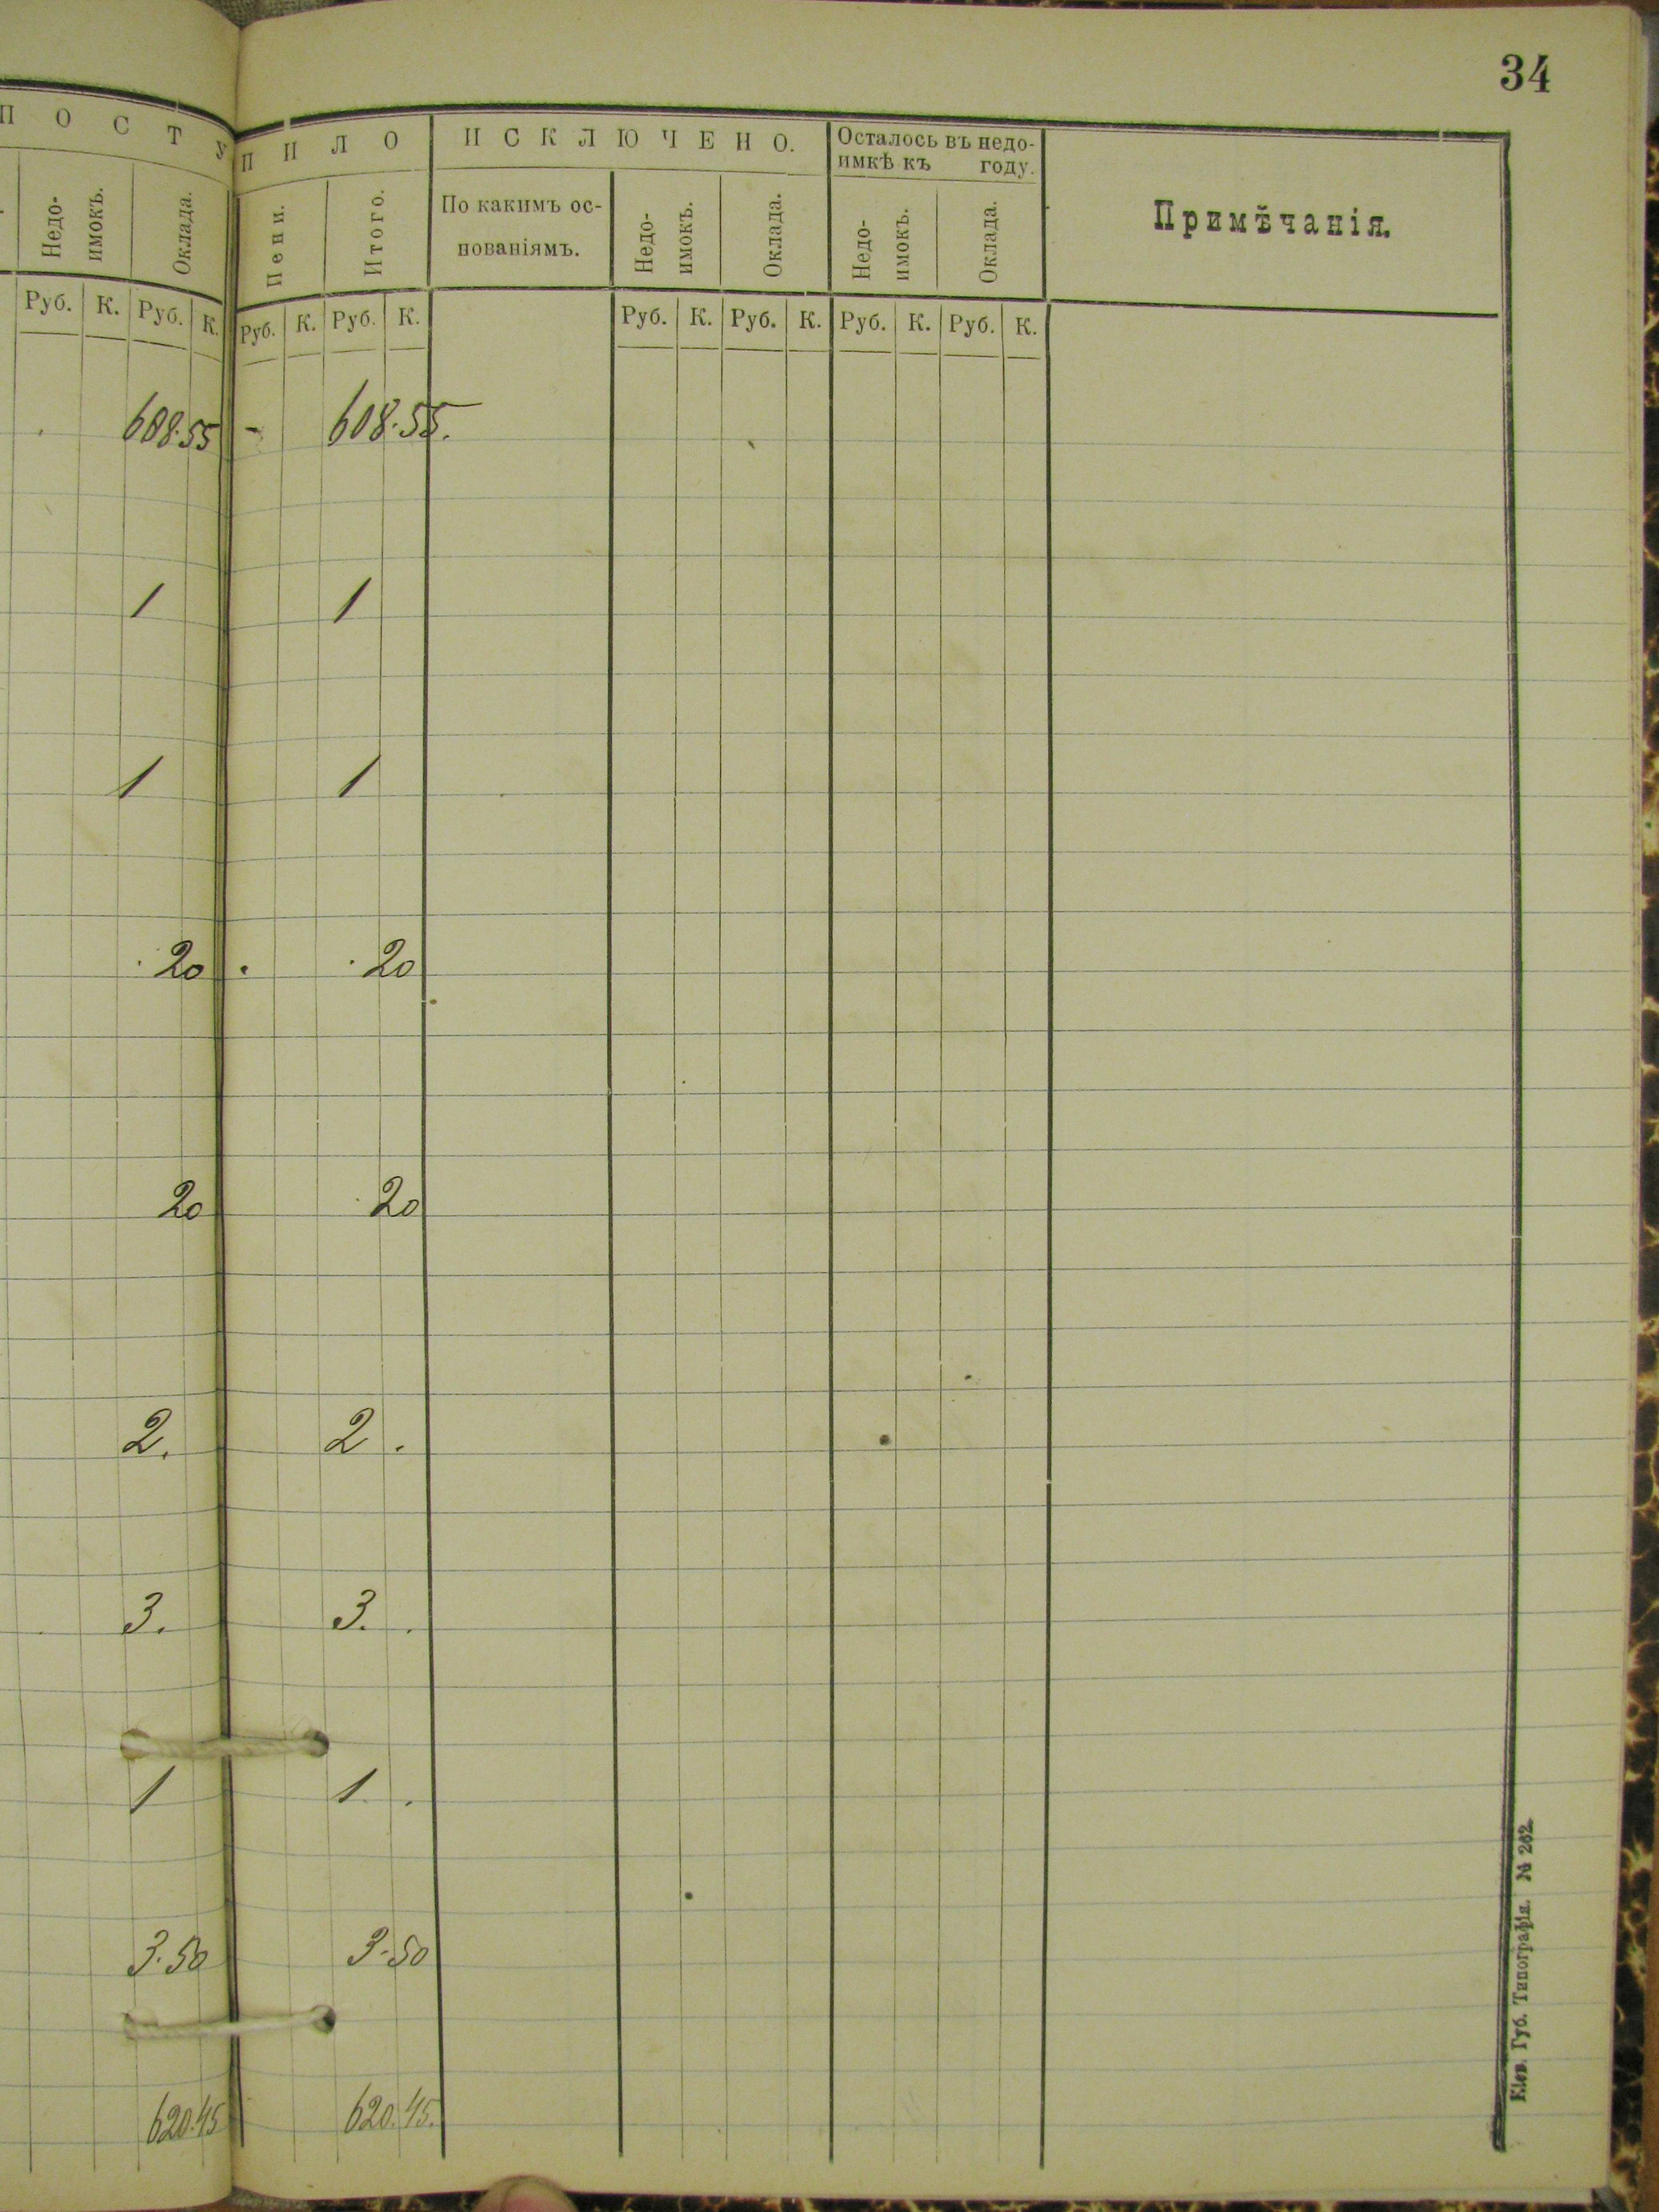 34
ПОСТУПИЛО ИСКЛЮЧЕНО. Осталось въ недо-
имкѣ къ году.
Недо-
имокъ. Оклада. Пени. Итого. По какимъ ос-
нованіямъ. Недо-
имокъ. Оклада. Недо-
имокъ. Оклада. Примѣчанія.
Руб. К. Руб. К. Руб. К. Руб. К. Руб. К. Руб. К. Руб. К. Руб. К.
608.55 - 608.55.
1 1
1 1
20 20
20 20
2. 2.
3. 3.
1 1.
3.50 3.50
620.45 620.45.
Кіев. Губ. Типографія. № 262.